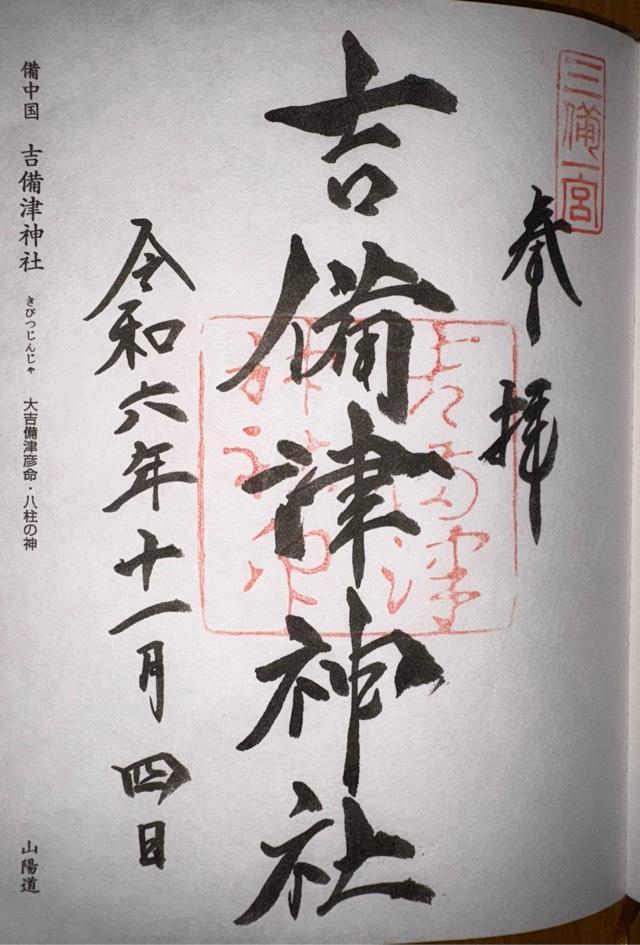 三備一宮
奉拝
吉備津神社
吉備津
神社
令和六年十一月四日
備中国 吉備津神社 きびつじんじゃ 大吉備津彦命・八柱の神 山陽道